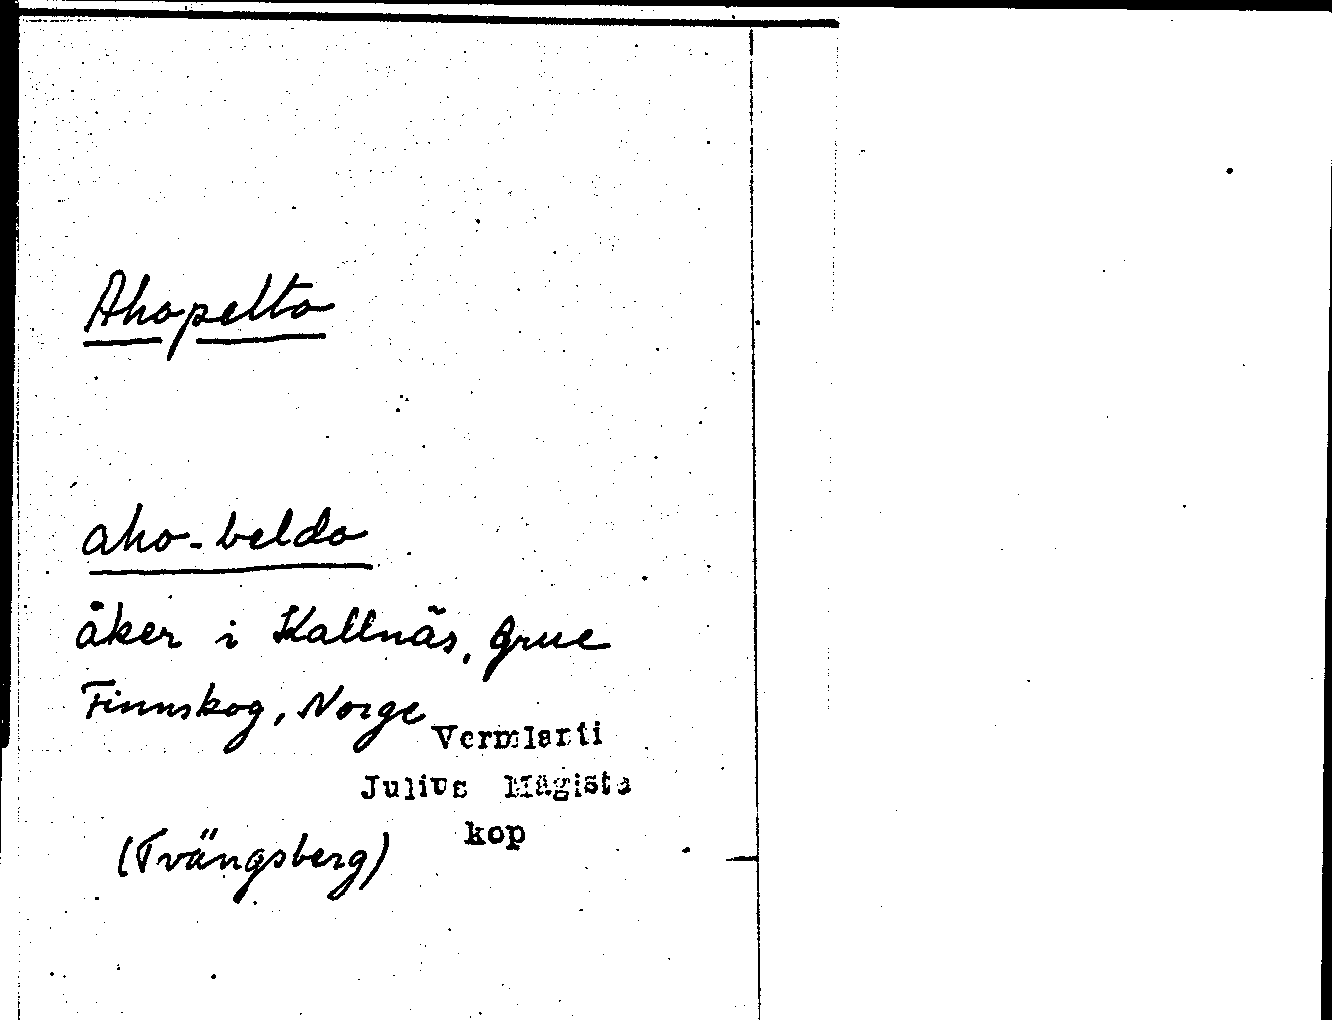 Ahopelto
aho-beldo
åker i Kallnäs, Grue
Finnskog, Norge
Vermlanti
Julius Mägiste
kop
(Tvängsberg)